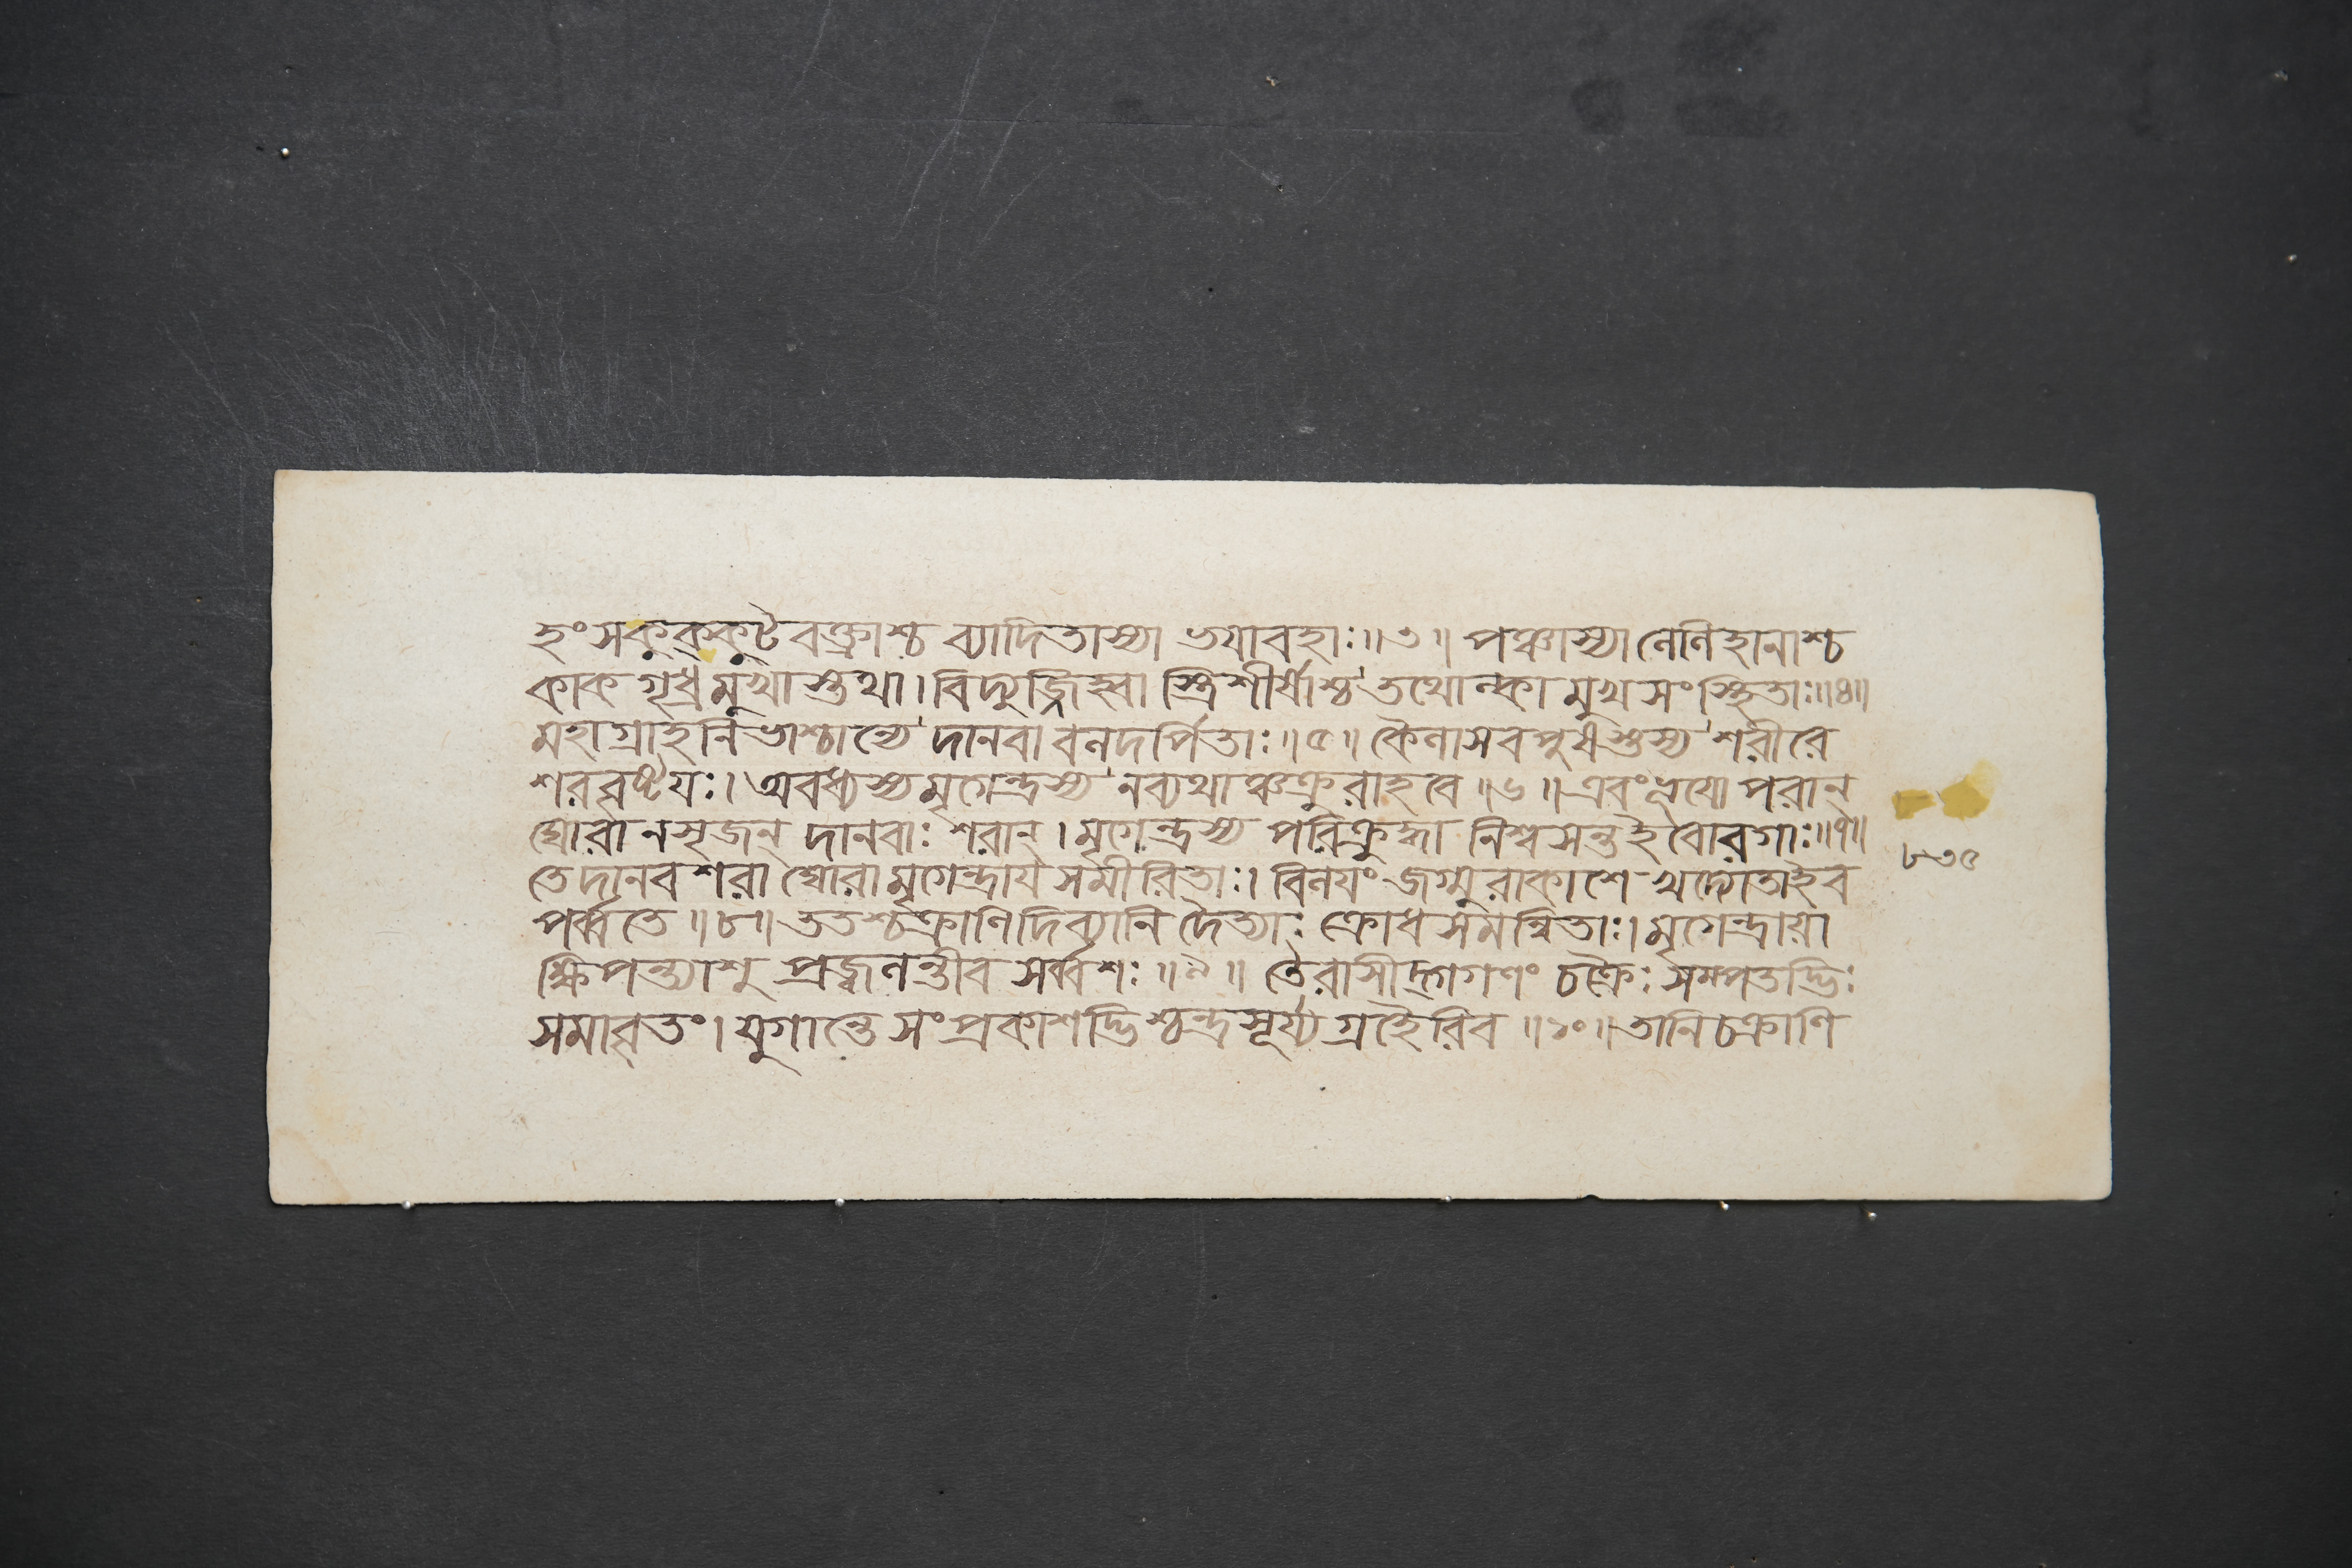 হংসকুক্কুটবক্ত্রাশ্চ ব্যাদিতাস্যা ভয়াবহাঃ॥৩॥ পঞ্চাস্যা লেলিহানাশ্চ
কাকগৃধ্রমুখাস্তথা। বিদ্যুজ্জিহ্বা স্ত্রিশীর্ষাশ্চ তথোল্কামুখসংস্থিতাঃ॥৪॥
মহাগ্রাহনিভাশ্চান্যে দানবা বলদর্পিতাঃ॥৫॥ কৈলাসবপুষস্তস্য শরীরে
শরবৃষ্টয়ঃ। অবধ্যস্য মৃগেন্দ্রস্য ন ব্যথাঞ্চক্রুরাহবে॥৬॥ এবং ভূয়ো পরান্
ঘোরানসৃজন্ দানবাঃ শরান্। মৃগেন্দ্রস্য পরিক্রুদ্ধা নিশ্বসন্তইবোরগাঃ॥৭॥
৮৩৫
তে দানবশরা ঘোরা মৃগেন্দ্রায় সমীরিতাঃ। বিলয়ং জগ্মুরাকাশে খদ্যোতাইব
পর্ব্বতে॥৮॥ ততশ্চক্রাণি দিব্যানি দৈত্যাঃ ক্রোধসমন্বিতাঃ। মৃগেন্দ্রায়া
ক্ষিপন্ত্যাশু প্রজ্বলন্তীব সর্ব্বশঃ॥৯॥ তৈরাসীদ্গগণং চক্রৈঃ সম্পতদ্ভিঃ
সমাবৃতং। যুগান্তে সংপ্রকাশদ্ভিশ্চন্দ্রসূর্য্যগ্রহৈরিব॥১০॥ তানি চক্রাণি